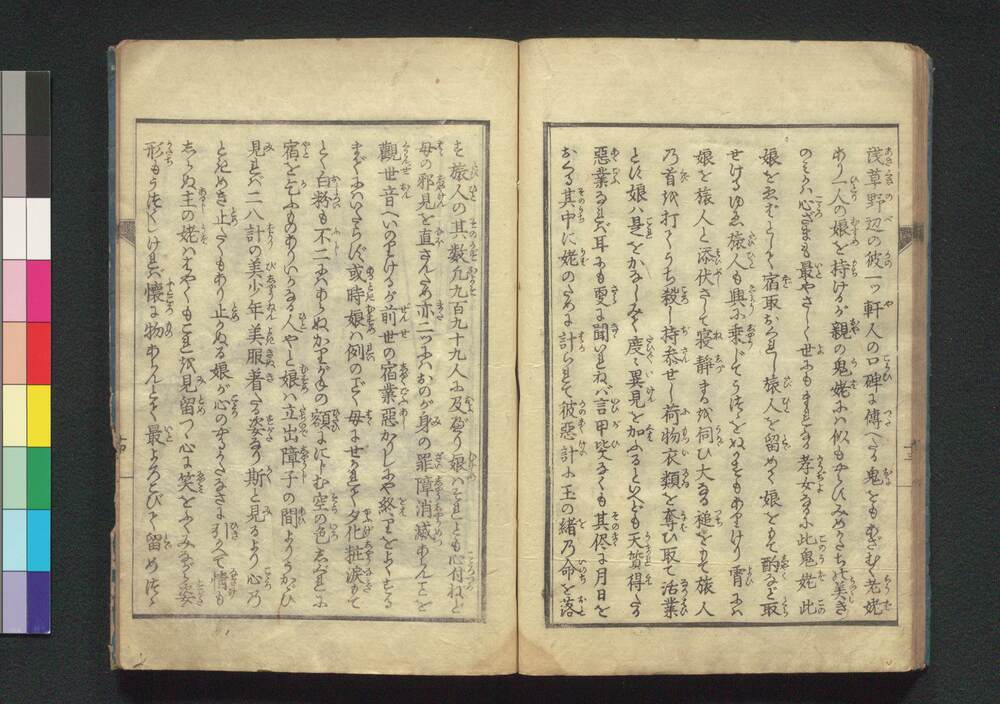 浅草野辺の彼一ッ軒人の口碑に傳へたる鬼をもあざむく老姥
あり一人の娘を持けるが親の鬼姥には似もやらでみめかたち美き
のみかは心ざまも最やさしく世にもまれなる孝女なるに此鬼姥此
娘をゑばとして宿取おくれし旅人を留めて娘をもて酌など取
せけるゆゑ旅人も興に乗じてうつゝをぬかすもありけり宵には
娘を旅人と添伏させて寝静まるを伺ひ大なる槌をもて旅人
乃首を打てうち殺し持参せし荷物衣類を奪ひ取て活業
とす娘は是をかなしみて度々異見を加ふるといへども天質得たる
惡業なれば耳にも更に聞いれねば言甲斐なくも其侭に月日を
おくる其中に姥のために計られて彼惡計に玉の緒乃命を落
す旅人の其数九九百九十九人に及べり娘はそれとも心付ねど
母の邪見を直さんため亦二ッにはおのが身の罪障消滅あらんことを
觀世音へいのりけるが前世の宿業惡かりしにや終りをよくせざる
までにはいたらず或時娘は例のごく母にせかれて夕化粧涙もて
とく白粉も不二にはあらぬかりがねの額によむ空の色しぐれに
宿を乞ふものありいかなる人やと娘は立出障子の間よりうかゞひ
見れば二八計の美少年美服着たる姿なり斯と見るより心乃
ときめき止たくもあり止かぬる娘が心のやるかたなさに引かへて情も
しらぬ主の姥ははやくもこれを見留つゝ心に笑をふくみながら姿
形もうつくしければ懐に物あらんとて最よろこびて留めつゝ